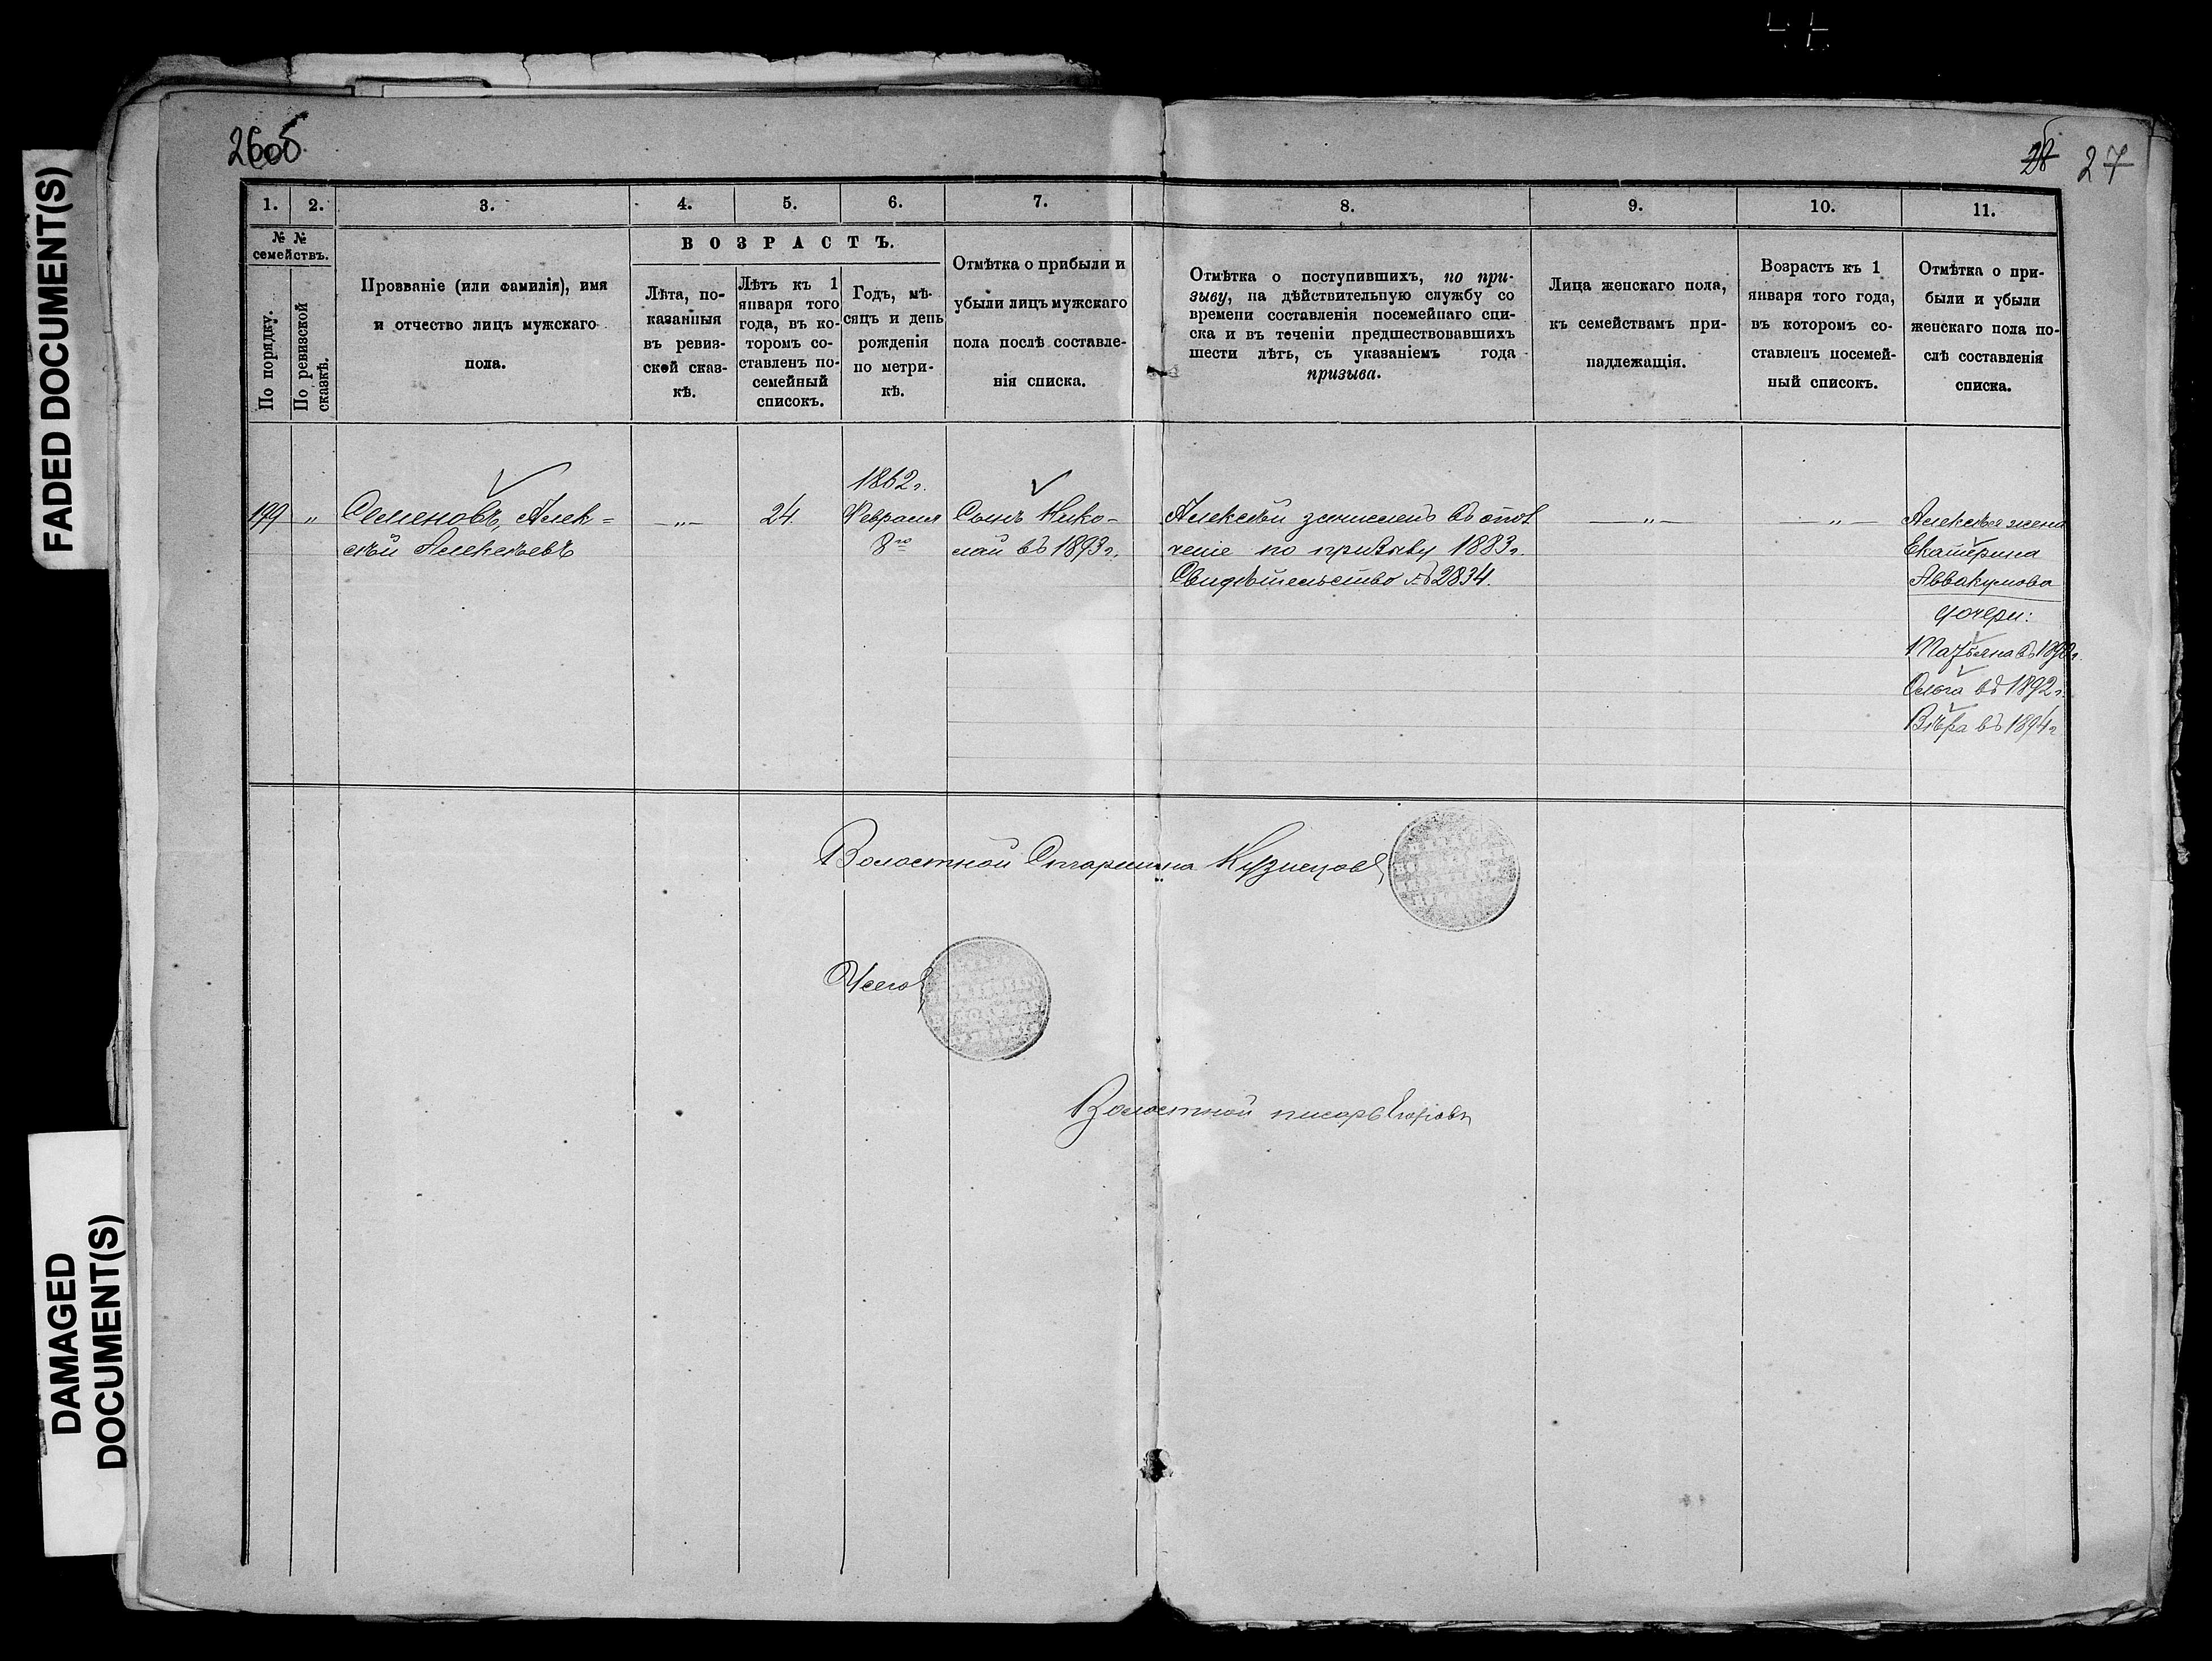 FADED DOCUMENT(S)
DAMAGED
DOCUMENT(S)
27
1.
2.
3.
4.
5.
6.
7.
8.
9.
10.
11.
№ №
семействъ.
По порядку.
По ревизской
сказкѣ.
Прозваніе (или фамилія), имя
и отчество лицъ мужскаго
пола.
ВОЗРАСТЪ.
Лѣта, по-
казанныя
въ ревиз-
ской сказ-
кѣ.
Лѣтъ къ 1
января того
года, въ ко-
торомъ со-
ставленъ по-
семейный
списокъ.
Годъ, мѣ-
сяцъ и день
рожденія
по метри-
кѣ.
Отмѣтка о прибыли и
убыли лицъ мужскаго
пола послѣ составле-
нія списка.
Отмѣтка о поступившихъ, по при-
зыву, на дѣйствительную службу со
времени составленія посемейнаго спи-
ска и въ теченіи предшествовавшихъ
шести лѣтъ, съ указаніемъ года
призыва.
Лица женскаго пола,
къ семействамъ при-
надлежащія.
Возрастъ къ 1
января того года,
въ которомъ со-
ставленъ посемей-
ный списокъ.
Отмѣтка о при-
были и убыли
женскаго пола по-
слѣ составленія
списка.
199
„
Семеновъ, Алек=
сѣй Алексѣевъ
—„—
24.
1862 г.
Февраля
8го
Сынъ Нико-
лай въ 1893 г.
Алексѣй зачисленъ въ опол
ченіе по призыву 1883 г.
Свидѣтельство № 2834.
—„—
—„—
Алексѣя жена
Екатерина
Аввакумова
дочери:
Татьяна въ 1890 г.
Ольга въ 1892 г.
Вѣра въ 1894 г
Волостной Старшина Кузнецовъ
Волостной писарь Егоровъ